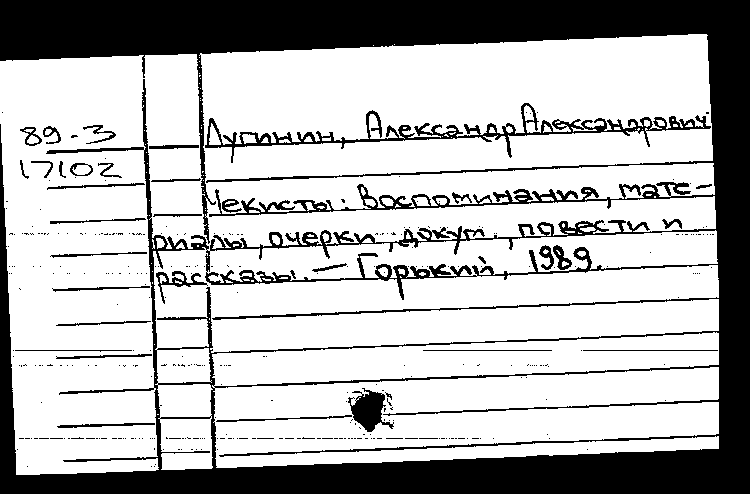 89-3
17102
Лугинин, Александр Александрович
Чекисты: Воспоминания, мате-
риалы, очерки, докум., повести и
рассказы. — Горький, 1989.